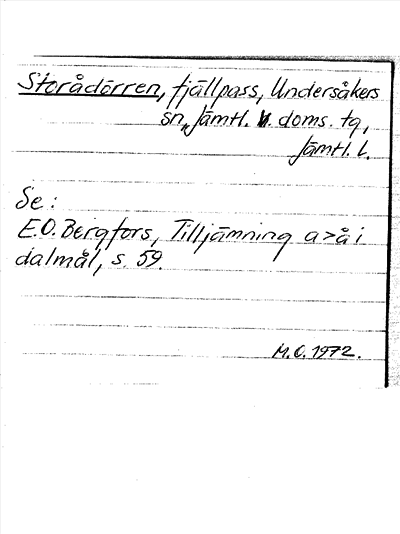 Storådörren, fjällpass, Undersåkers
sn, Jämtl. v. doms. tg,
Jämtl. l.
Se:
E.O. Bergfors, Tilljämning a>å i
dalmål, s. 59.
M.O. 1972.